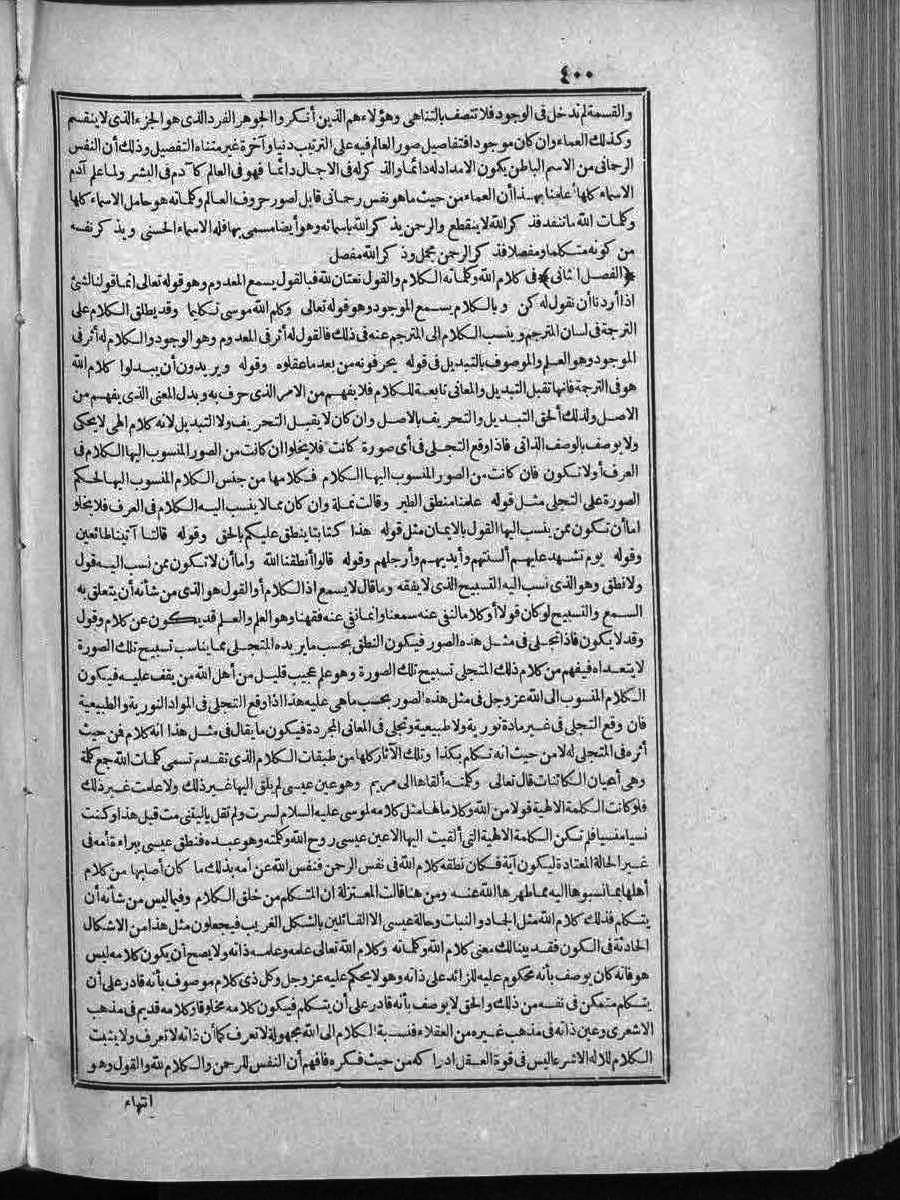 ٤٠٠
والقسمة لم تدخل فى الوجود فلا تتصف بالتناهى وهؤلاء هم الذين أنكروا الجوهر الفرد الذى هو الجزء الذى لا ينقسم
وكذلك العماء وان كان موجودا فتفاصيل صور العالم فيه على الترتيب دنيا وآخرة غير متناه التفصيل وذلك أن النفس
الرحمانى من الاسم الباطن يكون الامداد له دائما والذكر له فى الاجمال دائما فهو فى العالم كآدم فى البشر ولما علم آدم
الاسماء كلها أعلمنا بهذا أن العماء من حيث ما هو نفس رحمانى قابل لصور حروف العالم وكلماته هو حامل الاسماء كلها
وكلمات الله ما تنفد فذكر الله لا ينقطع والرحمن يذكر الله باسمائه وهو أيضا مسمى بها فله الاسماء الحسنى ويذكر نفسه
من كونه متكلما ومفصلا فذكر الرحمن مجمل وذكر الله مفصل
﴿الفصل الثانى﴾ فى كلام الله وكلماته الكلام والقول نعتان لله فبالقول يسمع المعدوم وهو قوله تعالى انما قولنا لشئ
اذا أردناه أن نقول له كن وبالكلام يسمع الموجود وهو قوله تعالى وكلم الله موسى تكليما وقد يطلق الكلام على
الترجمة فى لسان المترجم وينسب الكلام الى المترجم عنه فى ذلك فالقول له أثر فى المعدوم وهو الوجود والكلام له أثر فى
الموجود وهو العلم والموصوف بالتبديل فى قوله يحرفونه من بعد ما عقلوه وقوله ويريدون أن يبدلوا كلام الله
هو فى الترجمة فانها تقبل التبديل والمعانى تابعة للكلام فلا يفهم من الامر الذى حرف به وبدل المعنى الذى يفهم من
الاصل ولذلك ألحق التبديل والتحريف بالاصل وان كان لا يقبل التحريف ولا التبديل لانه كلام الهى لا يحكى
ولا يوصف بالوصف الذاتى فاذا وقع التجلى فى أى صورة كانت فلا يخلوا ان كانت من الصور المنسوب اليها الكلام فى
العرف أولا تكون فان كانت من الصور المنسوب اليها الكلام فكلامها من جنس الكلام المنسوب اليها الحكم
الصورة على التجلى مثل قوله علمنا منطق الطير وقالت نملة وان كان مما لا ينسب اليه الكلام فى العرف فلا يخلو
اما أن تكون ممن ينسب اليها القول بالايمان مثل قوله هذا كتابنا ينطق عليكم بالحق وقوله قالتا آتينا طائعين
وقوله يوم تشهد عليهم ألسنتهم وأيديهم وأرجلهم وقوله قالوا أنطقنا الله واما أن لا تكون ممن نسب اليه قول
ولا نطق وهو الذى نسب اليه التسبيح الذى لا يفقه وما قال لا يسمع اذ الكلام أو القول هو الذى من شأنه أن يتعلق به
السمع والتسبيح لو كان قولا أو كلاما لنفى عنه سمعنا وانما نفى عنه فقهنا وهو العلم والعلم قد يكون عن كلام وقول
وقد لا يكون فاذا تجلى فى مثل هذه الصور فيكون النطق بحسب ما يريده المتجلى مما يناسب تسبيح تلك الصورة
لا يتعداه فيفهم من كلام ذلك المتجلى تسبيح تلك الصورة وهو علم عجيب قليل من أهل الله من يقف عليه فيكون
الكلام المنسوب الى الله عز وجل فى مثل هذه الصور بحسب ما هى عليه هذا اذا وقع التجلى فى المواد النورية والطبيعية
فان وقع التجلى فى غير مادة نورية ولا طبيعية وتجلى فى المعانى المجردة فيكون ما يقال فى مثل هذا انه كلام فمن حيث
أثره فى المتجلى له لا من حيث انه تكلم بكذا وتلك الآثار كلها من طبقات الكلام الذى تقدم تسمى كلمات الله جمع كلمة
وهى أعيان الكائنات قال تعالى وكلمته ألقاها الى مريم وهو عين عيسى لم يلق اليها غير ذلك ولا علمت غير ذلك
فلو كانت الكلمة الالهية قولا من الله وكلاما لها مثل كلامه لموسى عليه السلام لسرت ولم تقل ياليتنى مت قبل هذا وكنت
نسيا منسيا فلم تكن الكلمة الالهية التى ألقيت اليها الا عين عيسى روح الله وكلمته وهو عبده فنطق عيسى ببراءة أمه فى
غير الحالة المعتادة ليكون آية فكان نطقه كلام الله فى نفس الرحمن فنفس الله عن أمه بذلك ما كان أصابها من كلام
أهلها بما نسبوها اليه مما طهرها الله عنه ومن هنا قالت المعتزلة ان المتكلم من خلق الكلام وفيما ليس من شأنه أن
يتكلم فذلك كلام الله مثل الجماد والنبات وحالة عيسى الا القائلين بالشكل الغريب فيجعلون مثل هذا من الاشكال
الحادثة فى الكون فقد بينا لك معنى كلام الله وكلماته وكلام الله تعالى علمه وعلمه ذاته ولا يصح أن يكون كلامه ليس
هو فانه كان يوصف بأنه محكوم عليه للزائد على ذاته وهو لا يحكم عليه عز وجل وكل ذى كلام موصوف بأنه قادر على أن
يتكلم متمكن فى نفسه من ذلك والحق لا يوصف بأنه قادر على أن يتكلم فيكون كلامه مخلوقا وكلامه قديم فى مذهب
الاشعرى وعين ذاته فى مذهب غيره من العقلاء فنسبة الكلام الى الله مجهولة لا تعرف كما أن ذاته لا تعرف ولا يثبت
الكلام للاله الا شرعا ليس فى قوة العقل ادراكه من حيث فكره فافهم أن النفس للرحمن والكلام لله والقول وهو
انتهاء